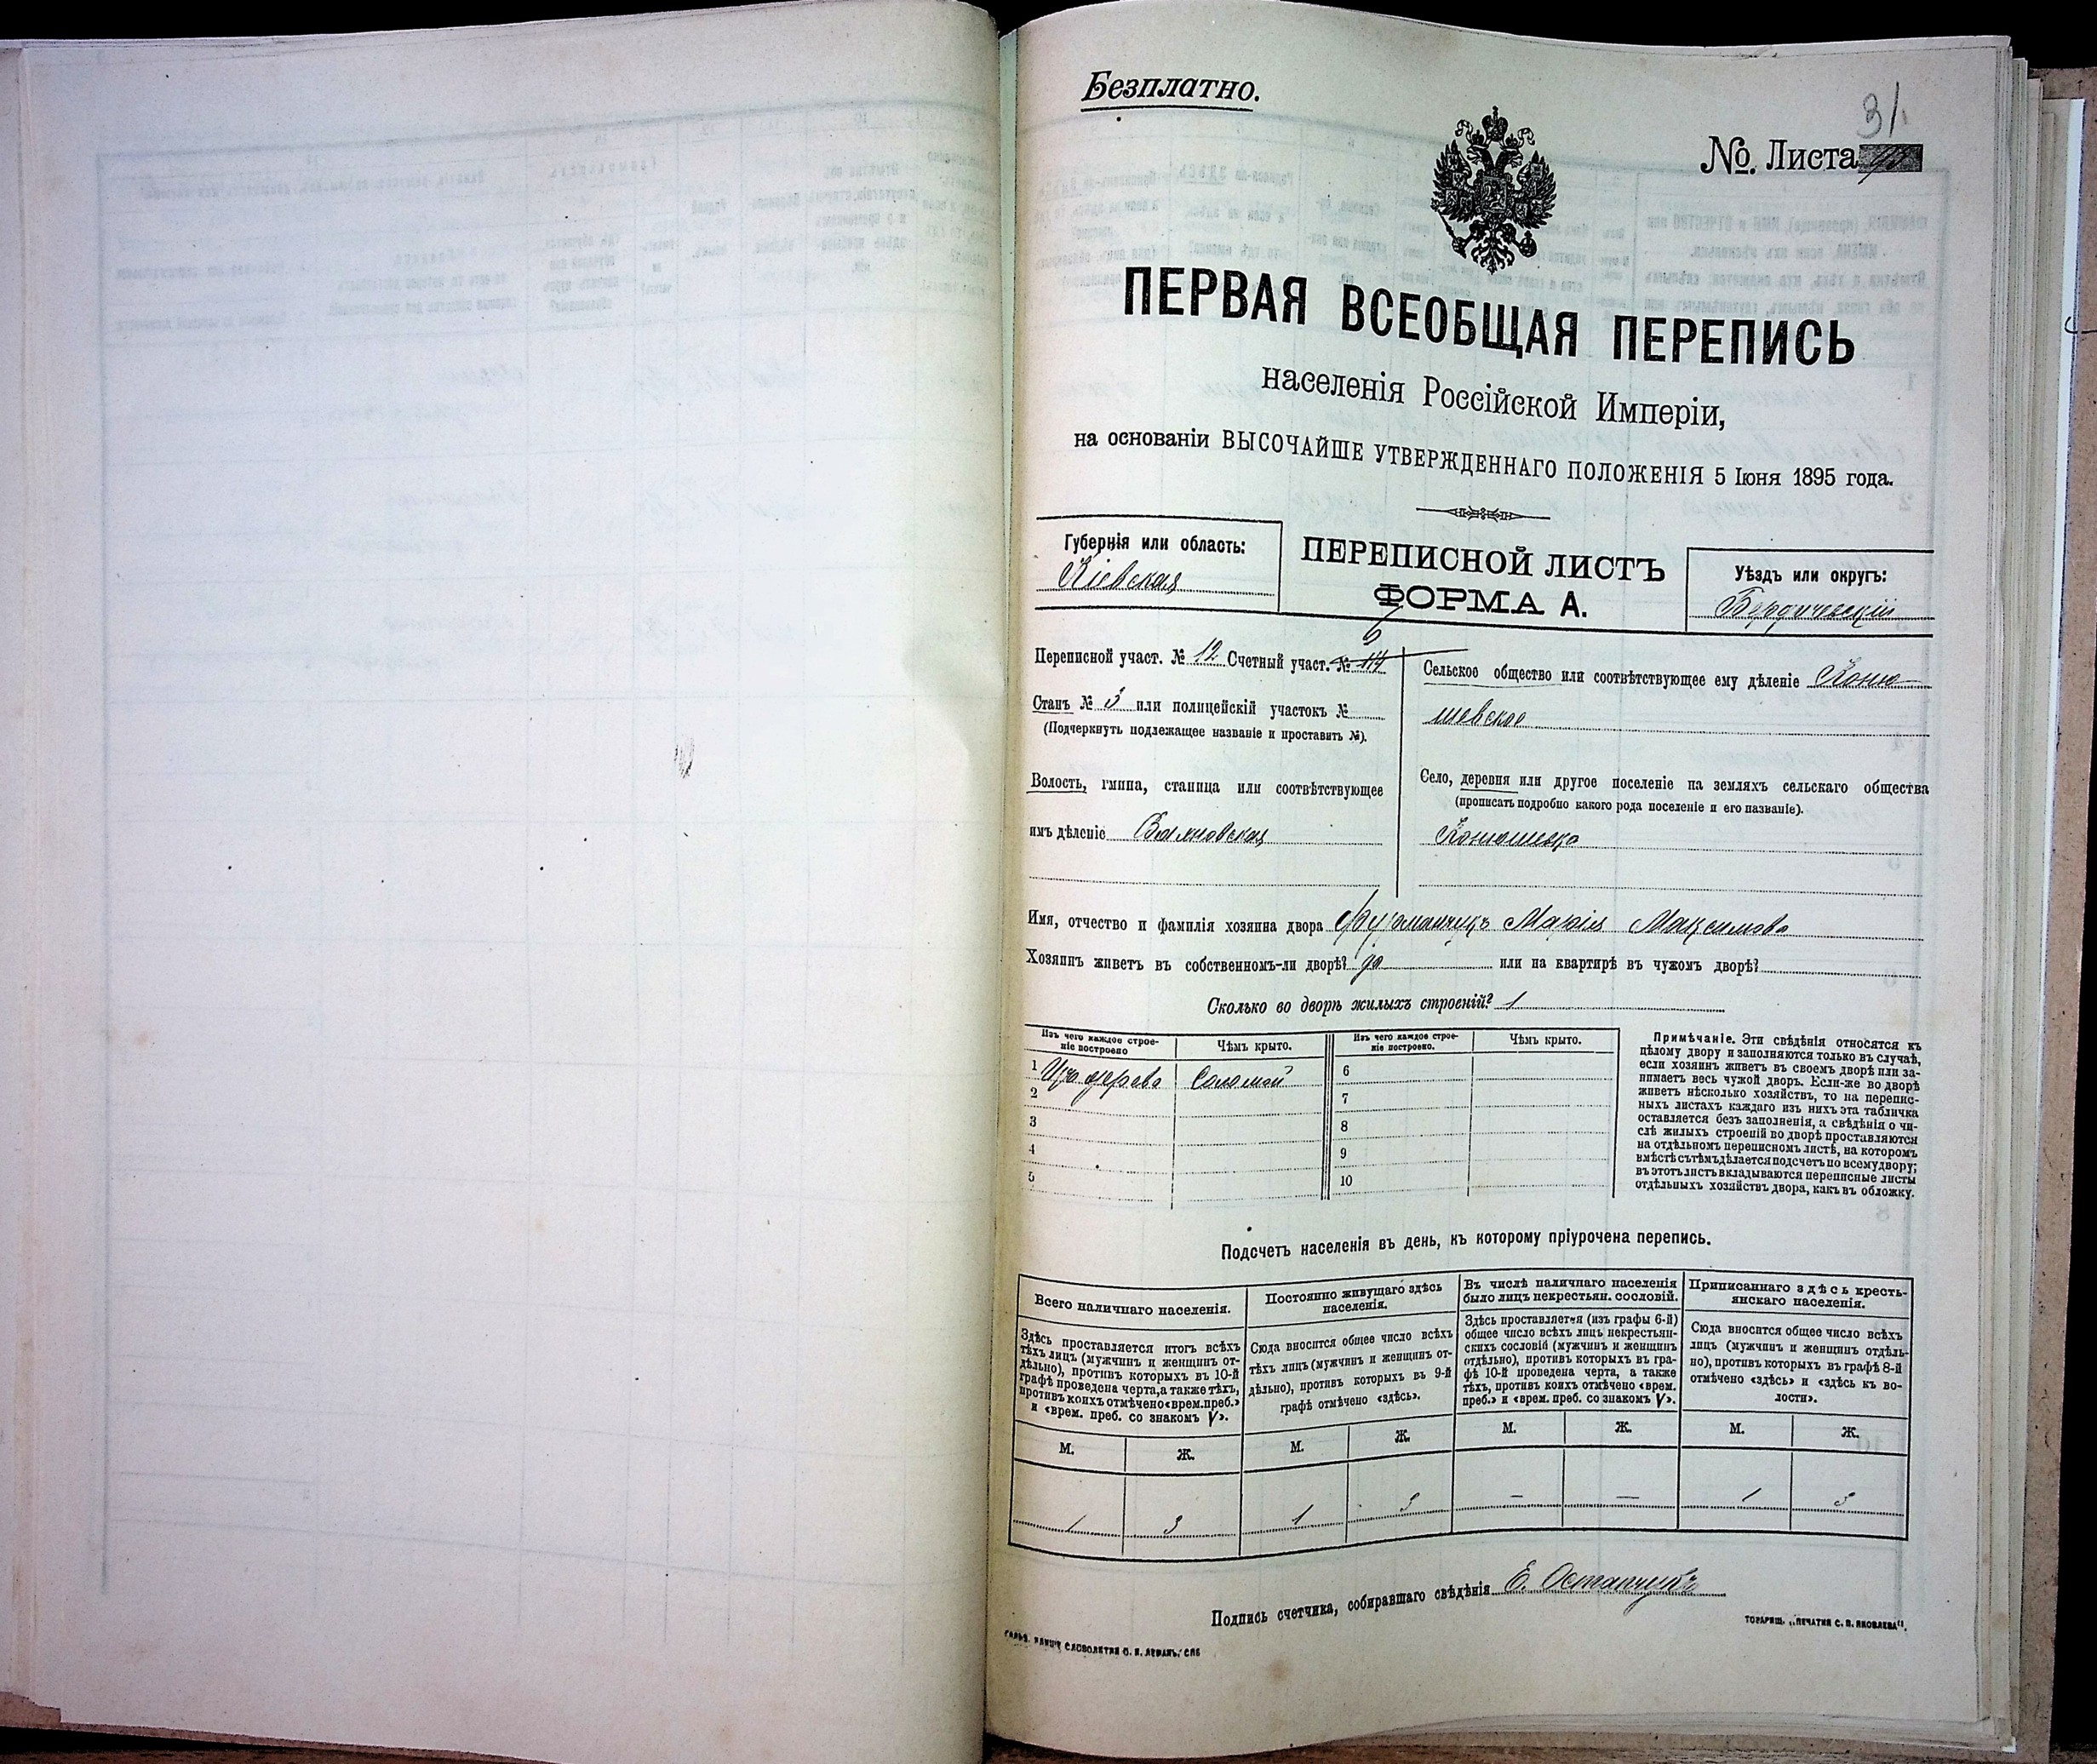 Безплатно.
31
№ Листа
ПЕРВАЯ ВСЕОБЩАЯ ПЕРЕПИСЬ
населенія Россійской Имперіи,
на основаніи ВЫСОЧАЙШЕ УТВЕРЖДЕННАГО ПОЛОЖЕНІЯ 5 Іюня 1895 года.
Губернія или область:
Кіевская
ПЕРЕПИСНОЙ ЛИСТЪ
ФОРМА А.
Уѣздъ или округъ:
Бердичевскій
Переписной участ. № 12 Счетный участ. №
Станъ № 3 или полицейскій участокъ №
(Подчеркнуть подлежащее названіе и проставить №).
Волость, гмина, станица или соотвѣтствующее
имъ дѣленіе
Сельское общество или соотвѣтствующее ему дѣленіе Коню-
шевское
Село, деревня или другое поселеніе на земляхъ сельскаго общества
(прописать подробно какого рода поселеніе и его названіе).
Конюшевка
Имя, отчество и фамилія хозяина двора Фурманчукъ Марія Максимова
Хозяинъ живетъ въ собственномъ-ли дворѣ? да или на квартирѣ въ чужомъ дворѣ?
Сколько во дворѣ жилыхъ строеній? 1
Изъ чего каждое строе-
ніе построено
Чѣмъ крыто.
Изъ чего каждое строе-
ніе построено.
Чѣмъ крыто.
1 Изъ дерева Соломой 6
2 7
3 8
4 9
5 10
Примѣчаніе. Эти свѣдѣнія относятся къ
цѣлому двору и заполняются только въ случаѣ,
если хозяинъ живетъ въ своемъ дворѣ или за-
нимаетъ весь чужой дворъ. Если-же во дворѣ
живетъ нѣсколько хозяйствъ, то на перепис-
ныхъ листахъ каждаго изъ нихъ эта табличка
оставляется безъ заполненія, а свѣдѣнія о чи-
слѣ жилыхъ строеній во дворѣ проставляются
на отдѣльномъ переписномъ листѣ, на которомъ
вмѣстѣ съ тѣмъ дѣлается подсчетъ по всему двору;
въ этотъ листъ вкладываются переписные листы
отдѣльныхъ хозяйствъ двора, какъ въ обложку.
Подсчетъ населенія въ день, къ которому пріурочена перепись.
Всего наличнаго населенія.
Здѣсь проставляется итогъ всѣхъ
тѣхъ лицъ (мужчинъ и женщинъ от-
дѣльно), противъ которыхъ въ 10-й
графѣ проведена черта, а также тѣхъ,
противъ коихъ отмѣчено «врем. преб.»
и «врем. преб. со знакомъ V».
Постоянно живущаго здѣсь
населенія.
Сюда вносится общее число всѣхъ
тѣхъ лицъ (мужчинъ и женщинъ от-
дѣльно), противъ которыхъ въ 9-й
графѣ отмѣчено «здѣсь».
Въ числѣ наличнаго населенія
было лицъ некрестьян. сословій.
Здѣсь проставляется (изъ графы 6-й)
общее число всѣхъ лицъ некрестьян-
скихъ сословій (мужчинъ и женщинъ
отдѣльно), противъ которыхъ въ гра-
фѣ 10-й проведена черта, а также
тѣхъ, противъ коихъ отмѣчено «врем.
преб.» и «врем. преб. со знакомъ V».
Приписаннаго здѣсь кресть-
янскаго населенія.
Сюда вносится общее число всѣхъ
лицъ (мужчинъ и женщинъ отдѣль-
но), противъ которыхъ въ графѣ 8-й
отмѣчено «здѣсь» и «здѣсь къ во-
лости».
М. Ж. М. Ж. М. Ж. М. Ж.
1 3 1 3 — — 1 3
Подпись счетчика, собиравшаго свѣдѣнія Е. Остапчукъ
СЛОВОЛИТНЯ О. И. ЛЕМАНЪ, СПБ
ТОВАРИЩ. „ПЕЧАТНЯ С. П. ЯКОВЛЕВА".